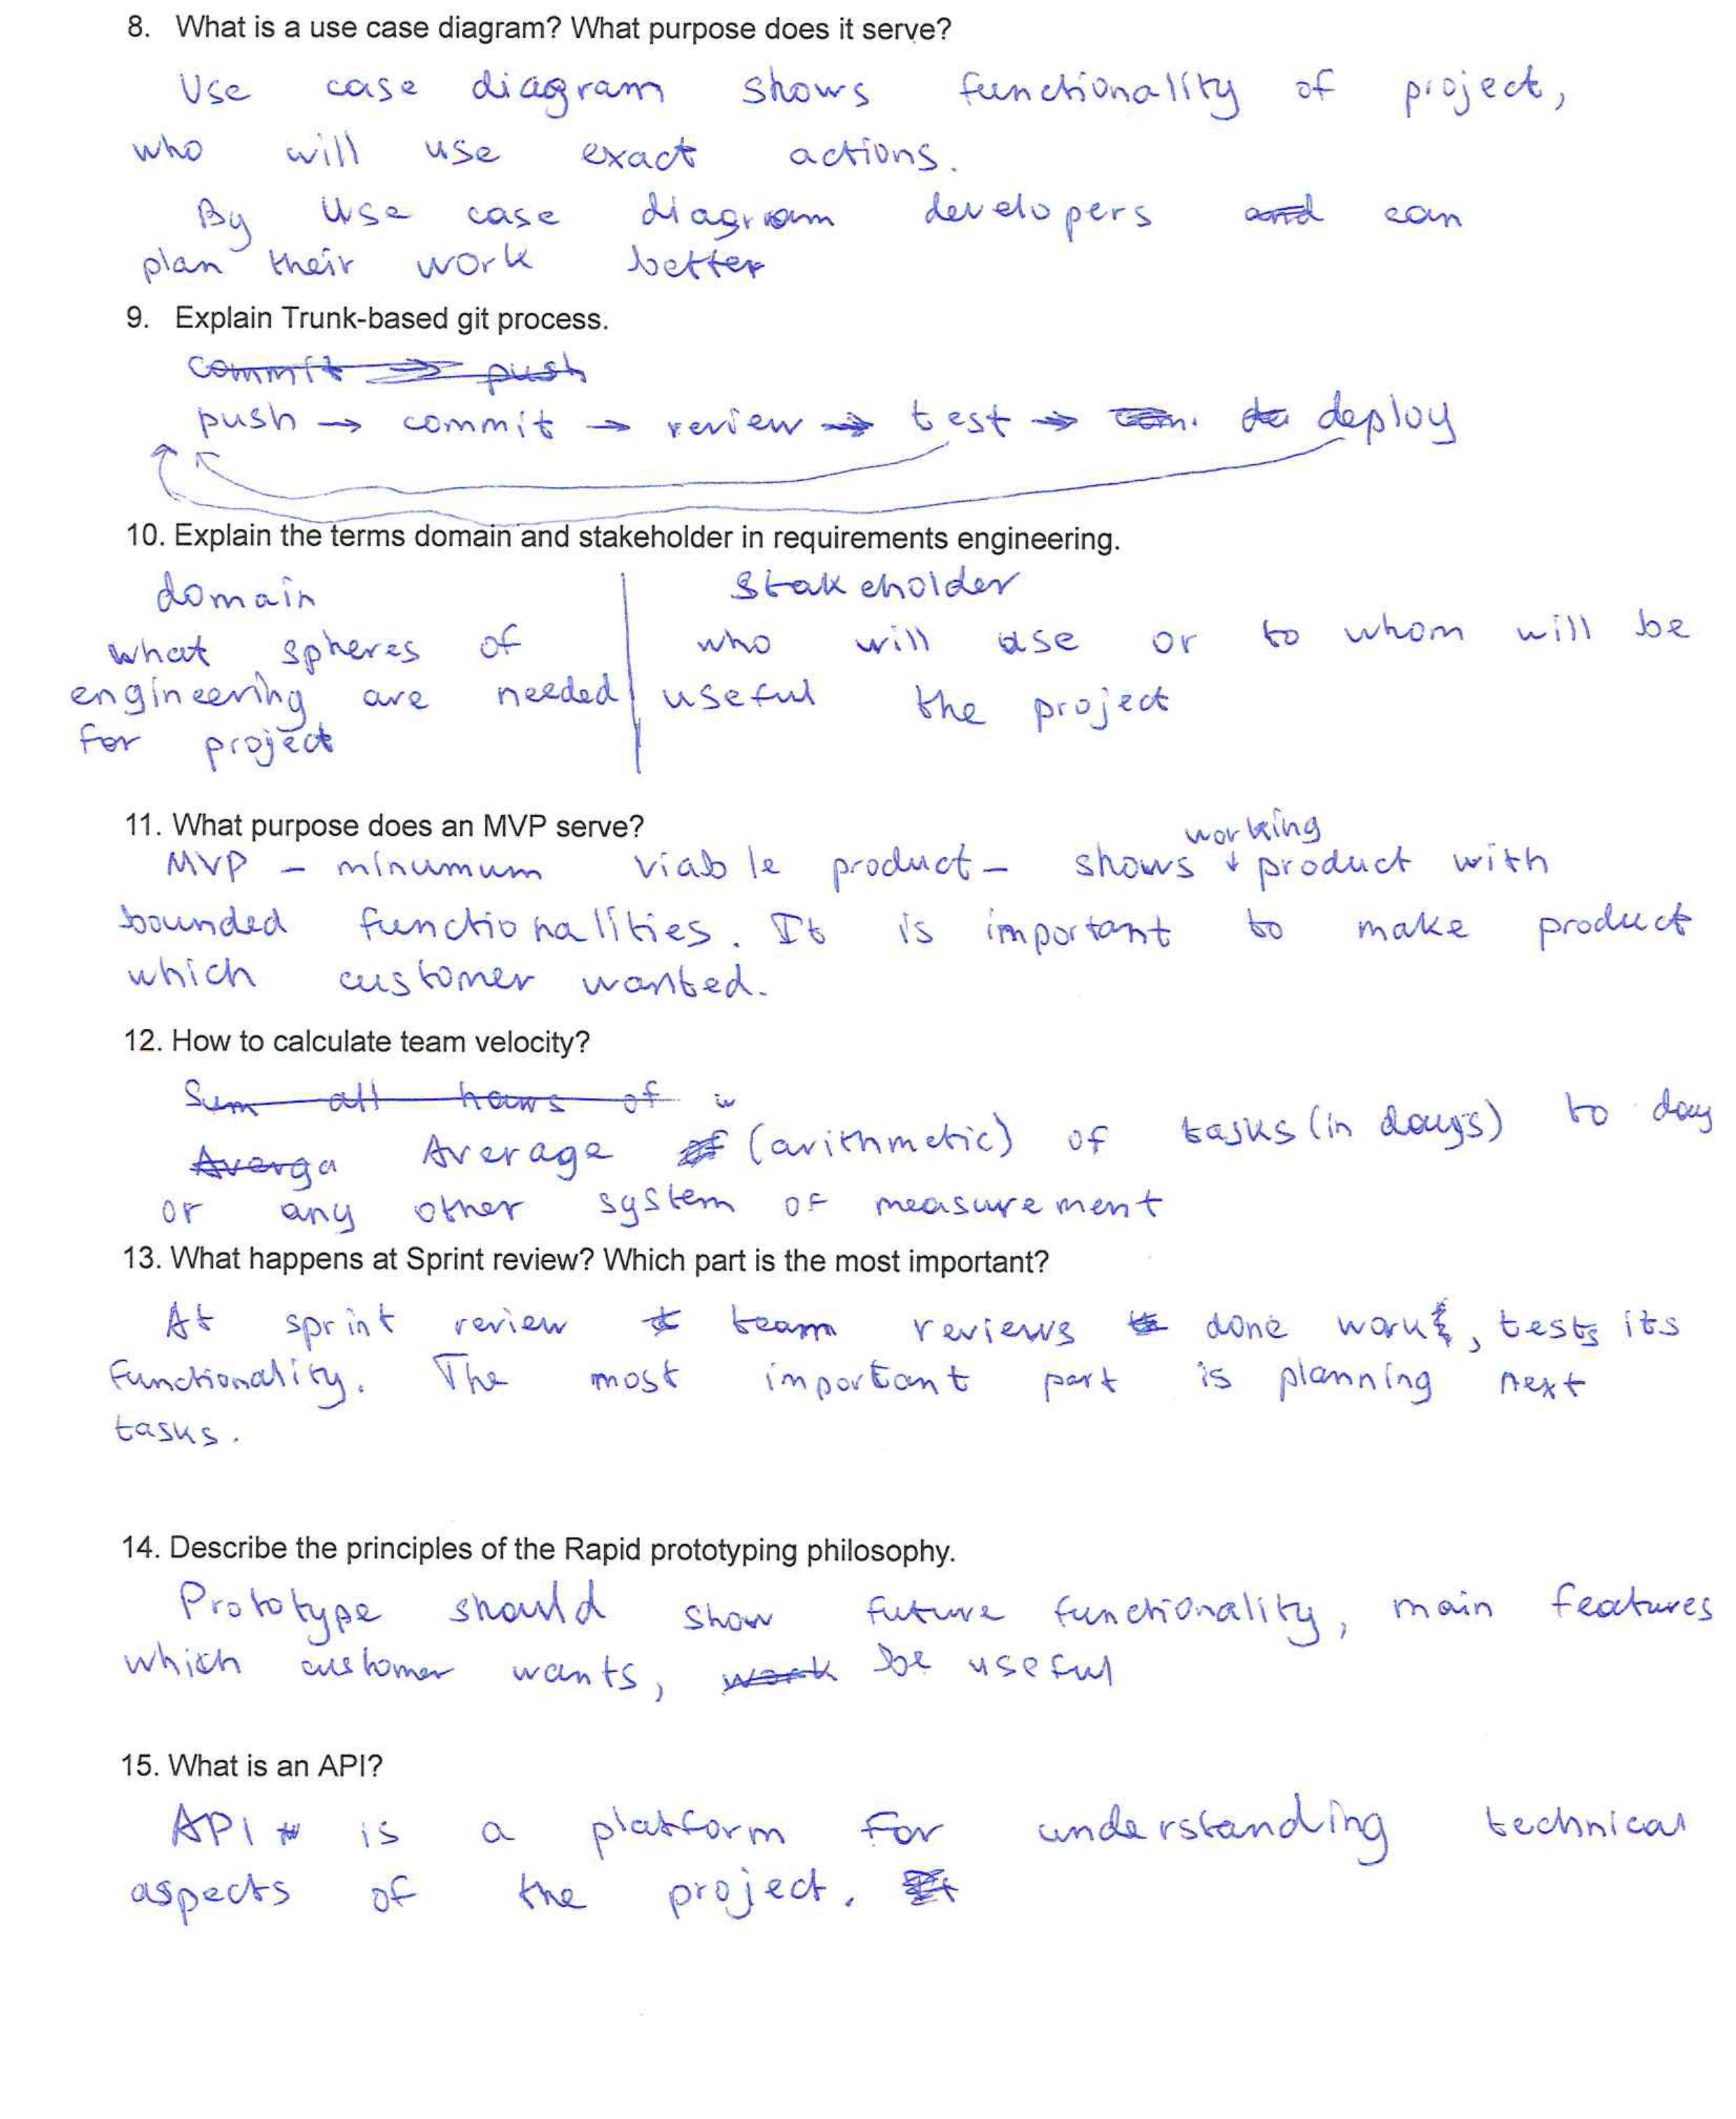 8. What is a use case diagram? What purpose does it serve?
Use case diagram shows functionality of project,
who will use exact actions.
By Use case diagram developers and can
plan their work better
9. Explain Trunk-based git process.
commit → push
push → commit → review → test → com. de deploy
10. Explain the terms domain and stakeholder in requirements engineering.
domain
what spheres of
engineering are needed
for project
Stakeholder
who will use or to whom will be
useful the project
11. What purpose does an MVP serve?
working
MVP - minumum viable product - shows ↓ product with
bounded functionalities. It is important to make product
which customer wanted.
12. How to calculate team velocity?
Sum all hours of w
Averga Average of (arithmetic) of tasks (in days) to day
or any other system of measurement
13. What happens at Sprint review? Which part is the most important?
At sprint review t team reviews done work, tests its
functionality. The most important part is planning next
tasks.
14. Describe the principles of the Rapid prototyping philosophy.
Prototype should show future functionality, main features
which customer wants, work be useful
15. What is an API?
API is a platform for understanding technical
aspects of the project.